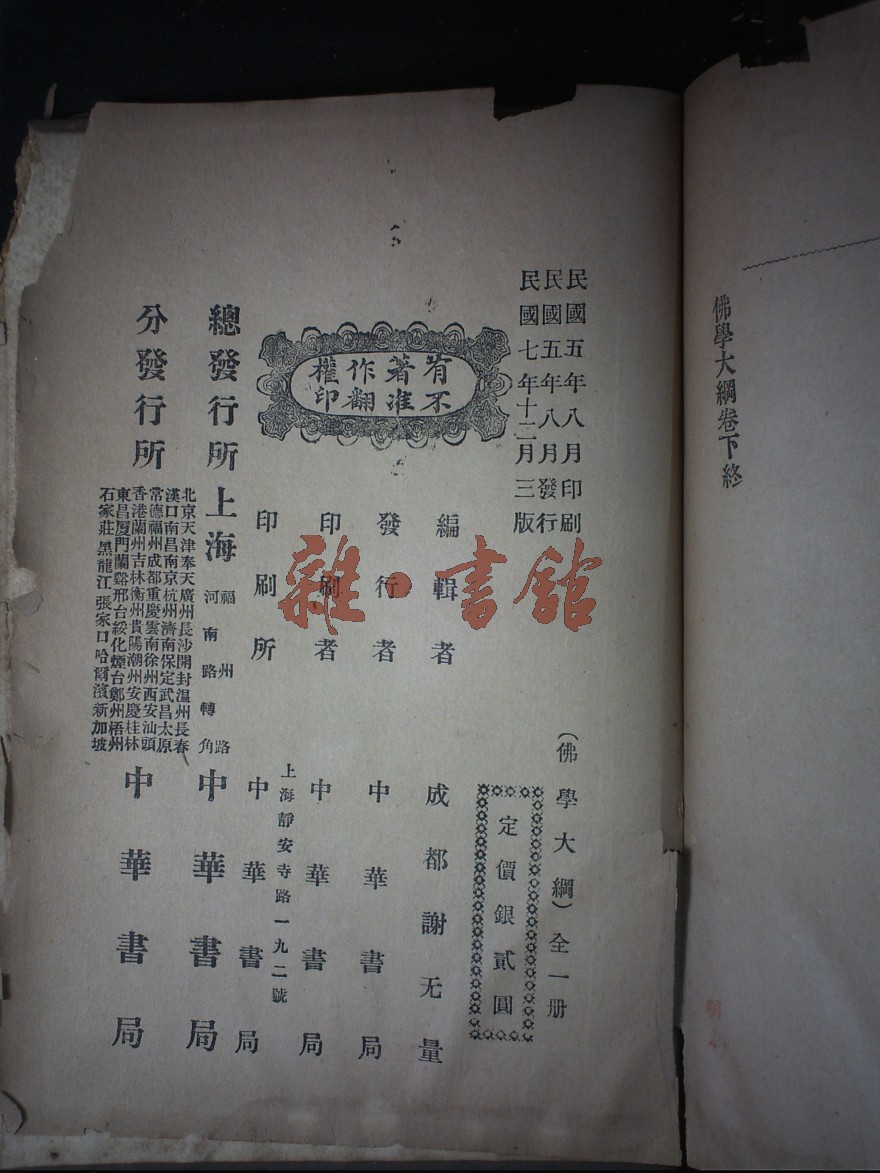 佛學大綱卷下終
民國五年八月印刷
民國五年八月發行
民國七年十二月三版
(佛學大綱)全一册
定價銀貳圓
有著作權
不准翻印
編輯者 成都謝无量
發行者 中華書局
印刷者 中華書局
上海靜安寺路一九二號
印刷所 中華書局
總發行所 上海 福州路河南路轉角 中華書局
分發行所
北京天津奉天廣州長沙開封温州長春
漢口南昌南京杭州濟南保定武昌太原
常德福州成都重慶雲南徐州西安汕頭
香港蘭州吉林衡州貴陽潮州安慶桂林
東昌厦門蘭谿邢台綏化煙台鄭州梧州
石家莊黑龍江張家口哈爾濱新加坡
中華書局
雜·書舘